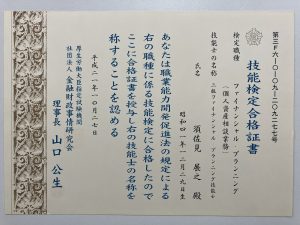 第三F六-一〇-〇九-二〇九二七七号
技能検定合格証書
検定職種
ファイナンシャル・プランニング
(個人資産相談業務)
技能士の名称
三級ファイナンシャル・プランニング技能士
氏名
須佐見 展之 殿
昭和四一年一二月二九日生
あなたは職業能力開発促進法の規定による
右の職種に係る技能検定に合格したので
ここに合格証書を授与し右の技能士の名称を
称することを認める
平成二一年一〇月二七日
厚生労働大臣指定試験機関
社団法人 金融財政事情研究会
理事長 山口 公生